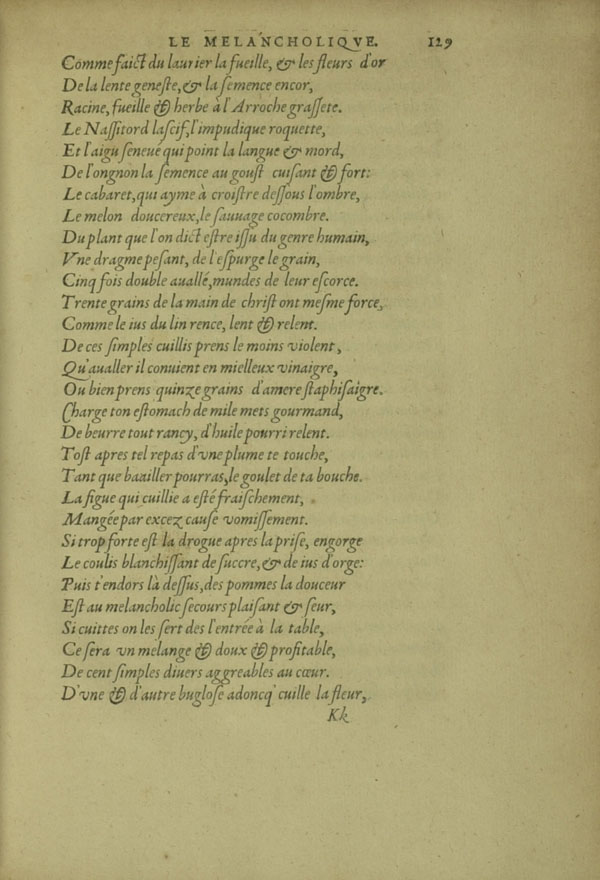 LE MELANCHOLIQVE. 129
Comme faict du laurier la fueille, & les fleurs d'or
De la lente geneſte, & la ſemence encor,
Racine, fueille & herbe à l'Arroche graſſete.
Le Naſſitord laſcif, l'impudique roquette,
Et l'aigu ſeneué qui point la langue & mord,
De l'ongnon la ſemence au gouſt cuiſant & fort:
Le cabaret, qui ayme à croiſtre deſſous l'ombre,
Le melon doucereux, le ſauuage cocombre.
Du plant que l'on dict eſtre iſſu du genre humain,
Vne dragme peſant, de l'eſpurge le grain,
Cinq fois double auallé, mundes de leur eſcorce.
Trente grains de la main de chriſt ont meſme force,
Comme le ius du lin rence, lent & relent.
De ces ſimples cuillis prens le moins violent,
Qu'aualler il conuient en mielleux vinaigre,
Ou bien prens quinze grains d'amere ſtaphiſaigre.
Charge ton eſtomach de mile mets gourmand,
De beurre tout rancy, d'huile pourri relent.
Toſt apres tel repas d'vne plume te touche,
Tant que baailler pourras, le goulet de ta bouche.
La figue qui cuillie a eſté fraiſchement,
Mangée par excez cauſe vomiſſement.
Si trop forte eſt la drogue apres la priſe, engorge
Le coulis blanchiſſant de ſuccre, & de ius d'orge:
Puis t'endors là deſſus, des pommes la douceur
Eſt au melancholic ſecours plaiſant & ſeur,
Si cuittes on les ſert des l'entrée à la table,
Ce ſera vn melange & doux & profitable,
De cent ſimples diuers aggreables au cœur.
D'vne & d'autre bugloſe adoncq' cuille la fleur,
Kk